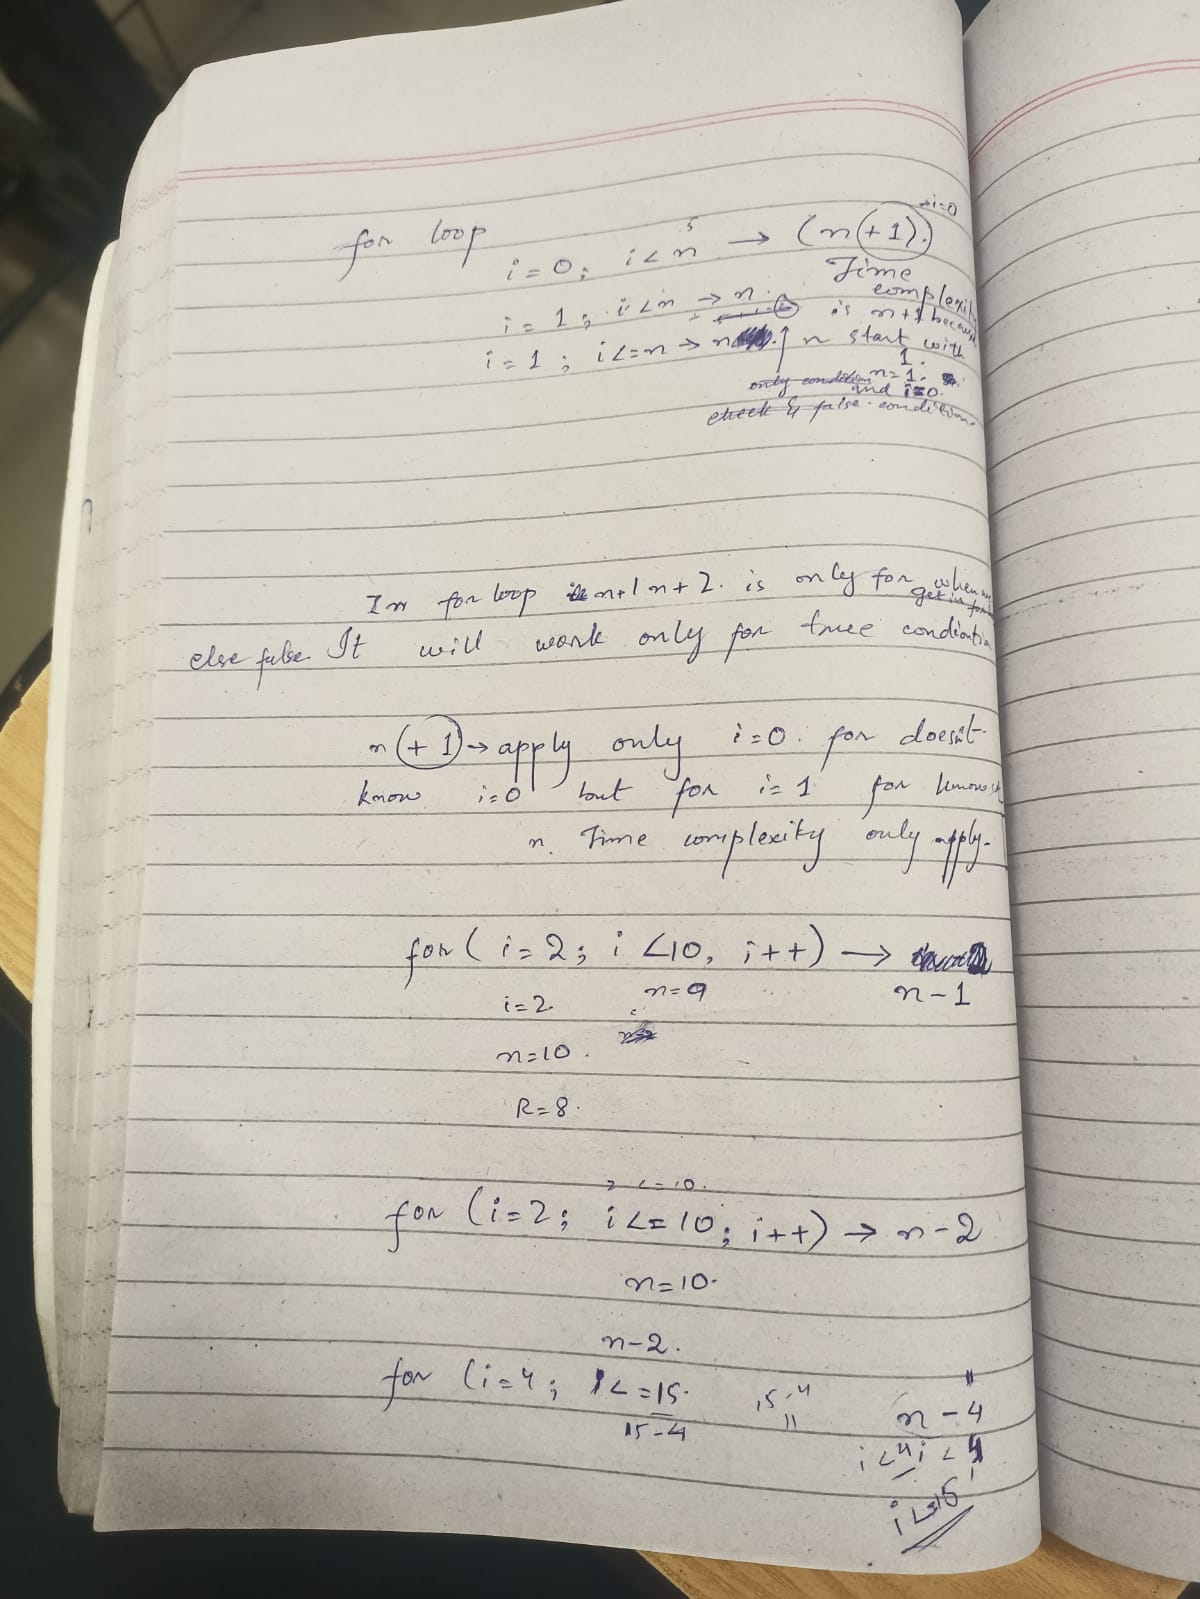 for loop
i=0; i<n → (n+1).
5
→i=0
Time
complexity
i=1; i<n → n.
is n+1 because
i=1; i<=n → n
n start with
1.
n=1.
only condition
and i=0.
check & false condition
In for loop n+1 n+2. is only for when
get in
else false It will work only for true
n(+1) → apply only i=0. for doesn't
know i=0 but for i=1 for
n. Time complexity only apply.
for ( i=2; i <10, i++) →
i=2. n=9 n-1
n=10.
R=8.
2 <=10.
for (i=2; i<=10; i++) → n-2
n=10.
n-2.
for (i=4; i<=15. 15-4 n-4
15-4 11 11
i<4 i<
i<=15